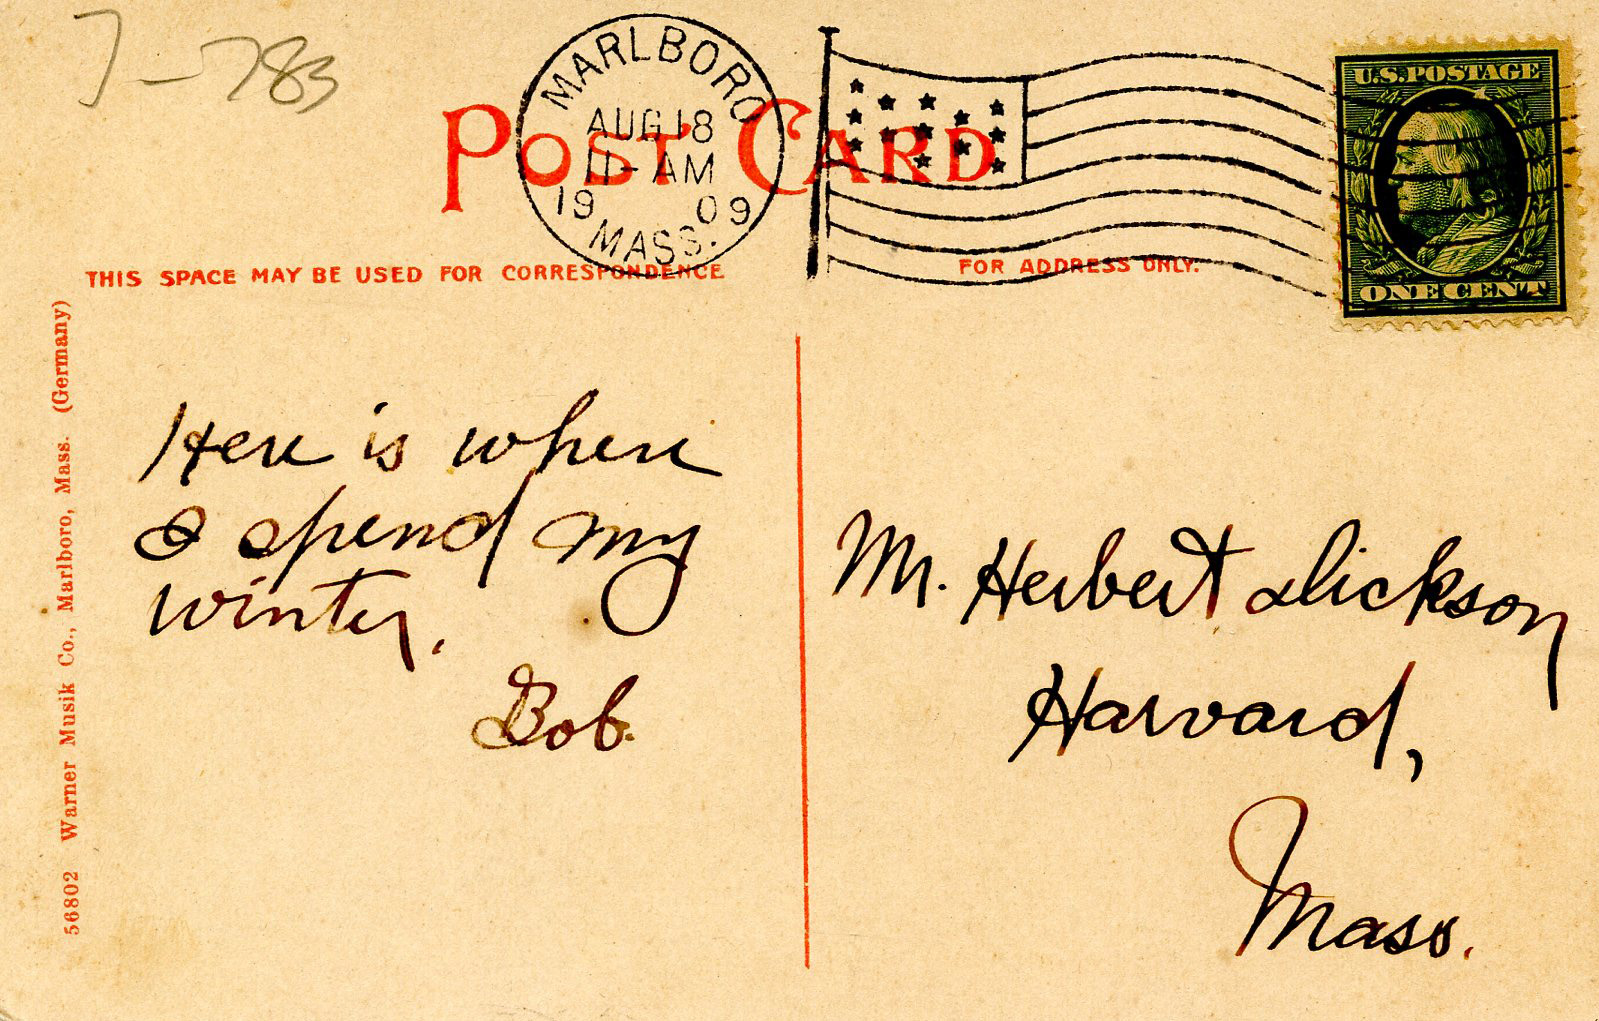 7-783
MARLBORO
AUG 18
11-AM
1909
MASS.
POST CARD
U.S. POSTAGE
ONE CENT
THIS SPACE MAY BE USED FOR CORRESPONDENCE
FOR ADDRESS ONLY.
56802 Warner Musik Co., Marlboro, Mass. (Germany)
Here is where
I spend my
winter.
Bob.
Mr. Herbert Dickson
Harvard,
Mass.